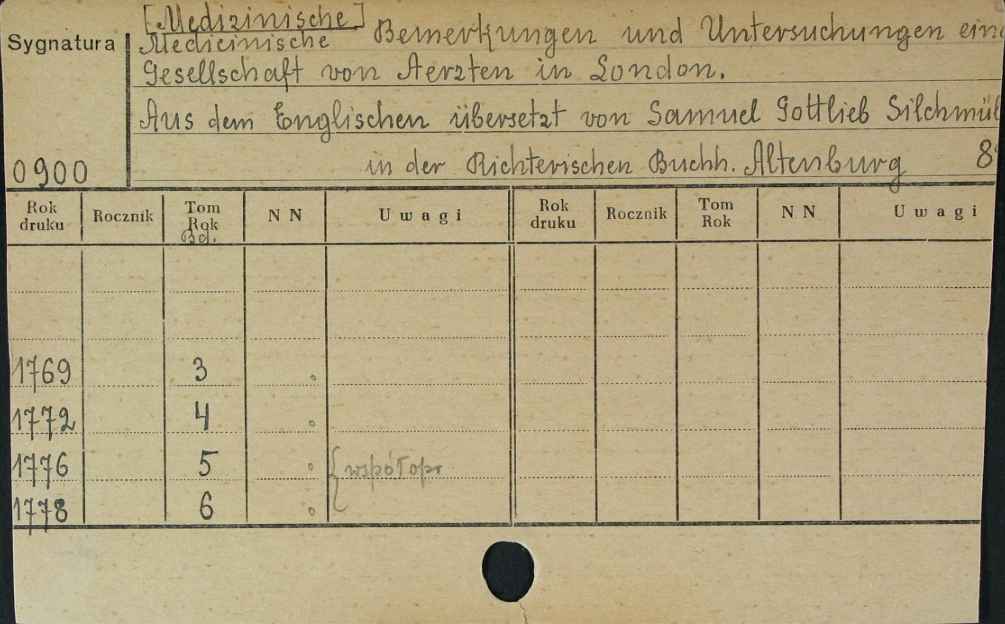 [Medizinische]
Sygnatura Medicinische Bemerkungen und Untersuchungen
Gesellschaft von Aerzten in London.
Aus dem Englischen übersetzt von Samuel Gottlieb Silchmül
0900 in der Richterischen Buchh. Altenburg 8°
Rok druku Rocznik Tom Rok Bd. NN Uwagi Rok druku Rocznik Tom Rok NN Uwagi
1769 3
1772 4
1776 5 { współopr
1778 6